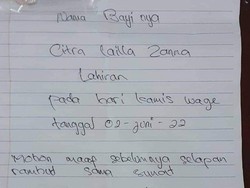 Nama Bayi nya
Citra lailla Zanna
Lahiran
pada hari kamis wage
tanggal 02-juni-22
Mohon maap sebelumnya selapan
rambud sama sunat